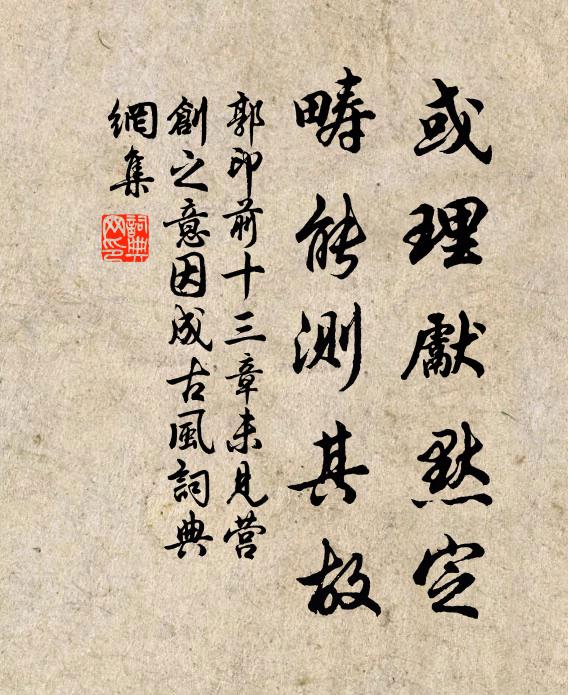 或理獻默定
疇能測其故
郭印前十三章未見营
創之意因成古風詞典
網集
詞典
网印